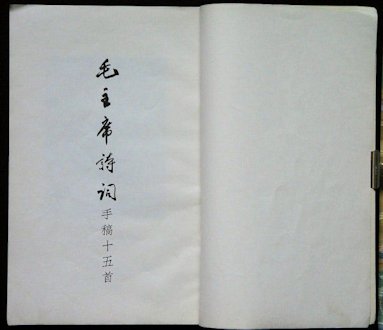 毛主席詩词手稿十五首